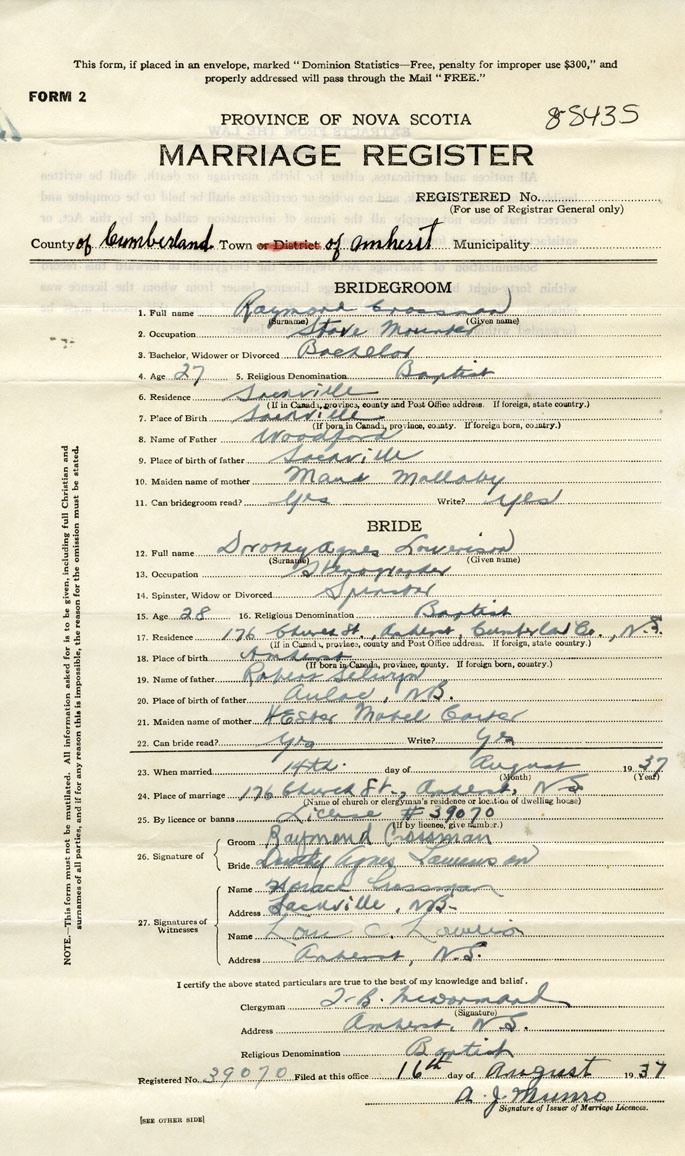 This form, if placed in an envelope, marked "Dominion Statistics—Free, penalty for improper use $300," and
properly addressed will pass through the Mail "FREE."
FORM 2
PROVINCE OF NOVA SCOTIA
88435
MARRIAGE REGISTER
REGISTERED No.
(For use of Registrar General only)
County of Cumberland Town or District of Amherst Municipality
BRIDEGROOM
1. Full name Raymond Crossman
(Surname) (Given name)
2. Occupation Stove Mounter
3. Bachelor, Widower or Divorced Bachelor
4. Age 27 5. Religious Denomination Baptist
6. Residence Sackville
(If in Canada, province, county and Post Office address. If foreign, state country.)
7. Place of Birth Sackville
(If born in Canada, province, county. If foreign born, country.)
8. Name of Father Woodford
9. Place of birth of father Sackville
10. Maiden name of mother Maud Mallaby
11. Can bridegroom read? Yes Write? Yes
BRIDE
12. Full name Dorothy Agnes Lowerison
(Surname) (Given name)
13. Occupation Stenographer
14. Spinster, Widow or Divorced Spinster
15. Age 28 16. Religious Denomination Baptist
17. Residence 176 Church St., Amherst, Cumberland Co., N.S.
(If in Canada, province, county and Post Office address. If foreign, state country.)
18. Place of birth Amherst
(If born in Canada, province, county. If foreign born, country.)
19. Name of father Robert Selwyn
20. Place of birth of father Aulac, N.B.
21. Maiden name of mother Hester Mabel Carter
22. Can bride read? Yes Write? Yes
23. When married 14th. day of August 1937
(Month) (Year)
24. Place of marriage 176 Church St., Amherst, N.S.
(Name of church or clergyman's residence or location of dwelling house)
25. By licence or banns License # 39070
(If by licence, give number.)
26. Signature of
Groom Raymond Crossman
Bride Dorothy Agnes Lowerison
27. Signatures of Witnesses
Name Horace Crossman
Address Sackville, N.B.
Name
Address Amherst, N.S.
I certify the above stated particulars are true to the best of my knowledge and belief.
Clergyman
(Signature)
Address Amherst, N.S.
Religious Denomination Baptist
Registered No. 39070 Filed at this office 16th day of August 1937
A. J. Munro
Signature of Issuer of Marriage Licences.
[SEE OTHER SIDE]
NOTE.—This form must not be mutilated. All information asked for is to be given, including full Christian and
surnames of all parties, and if for any reason this is impossible, the reason for the omission must be stated.